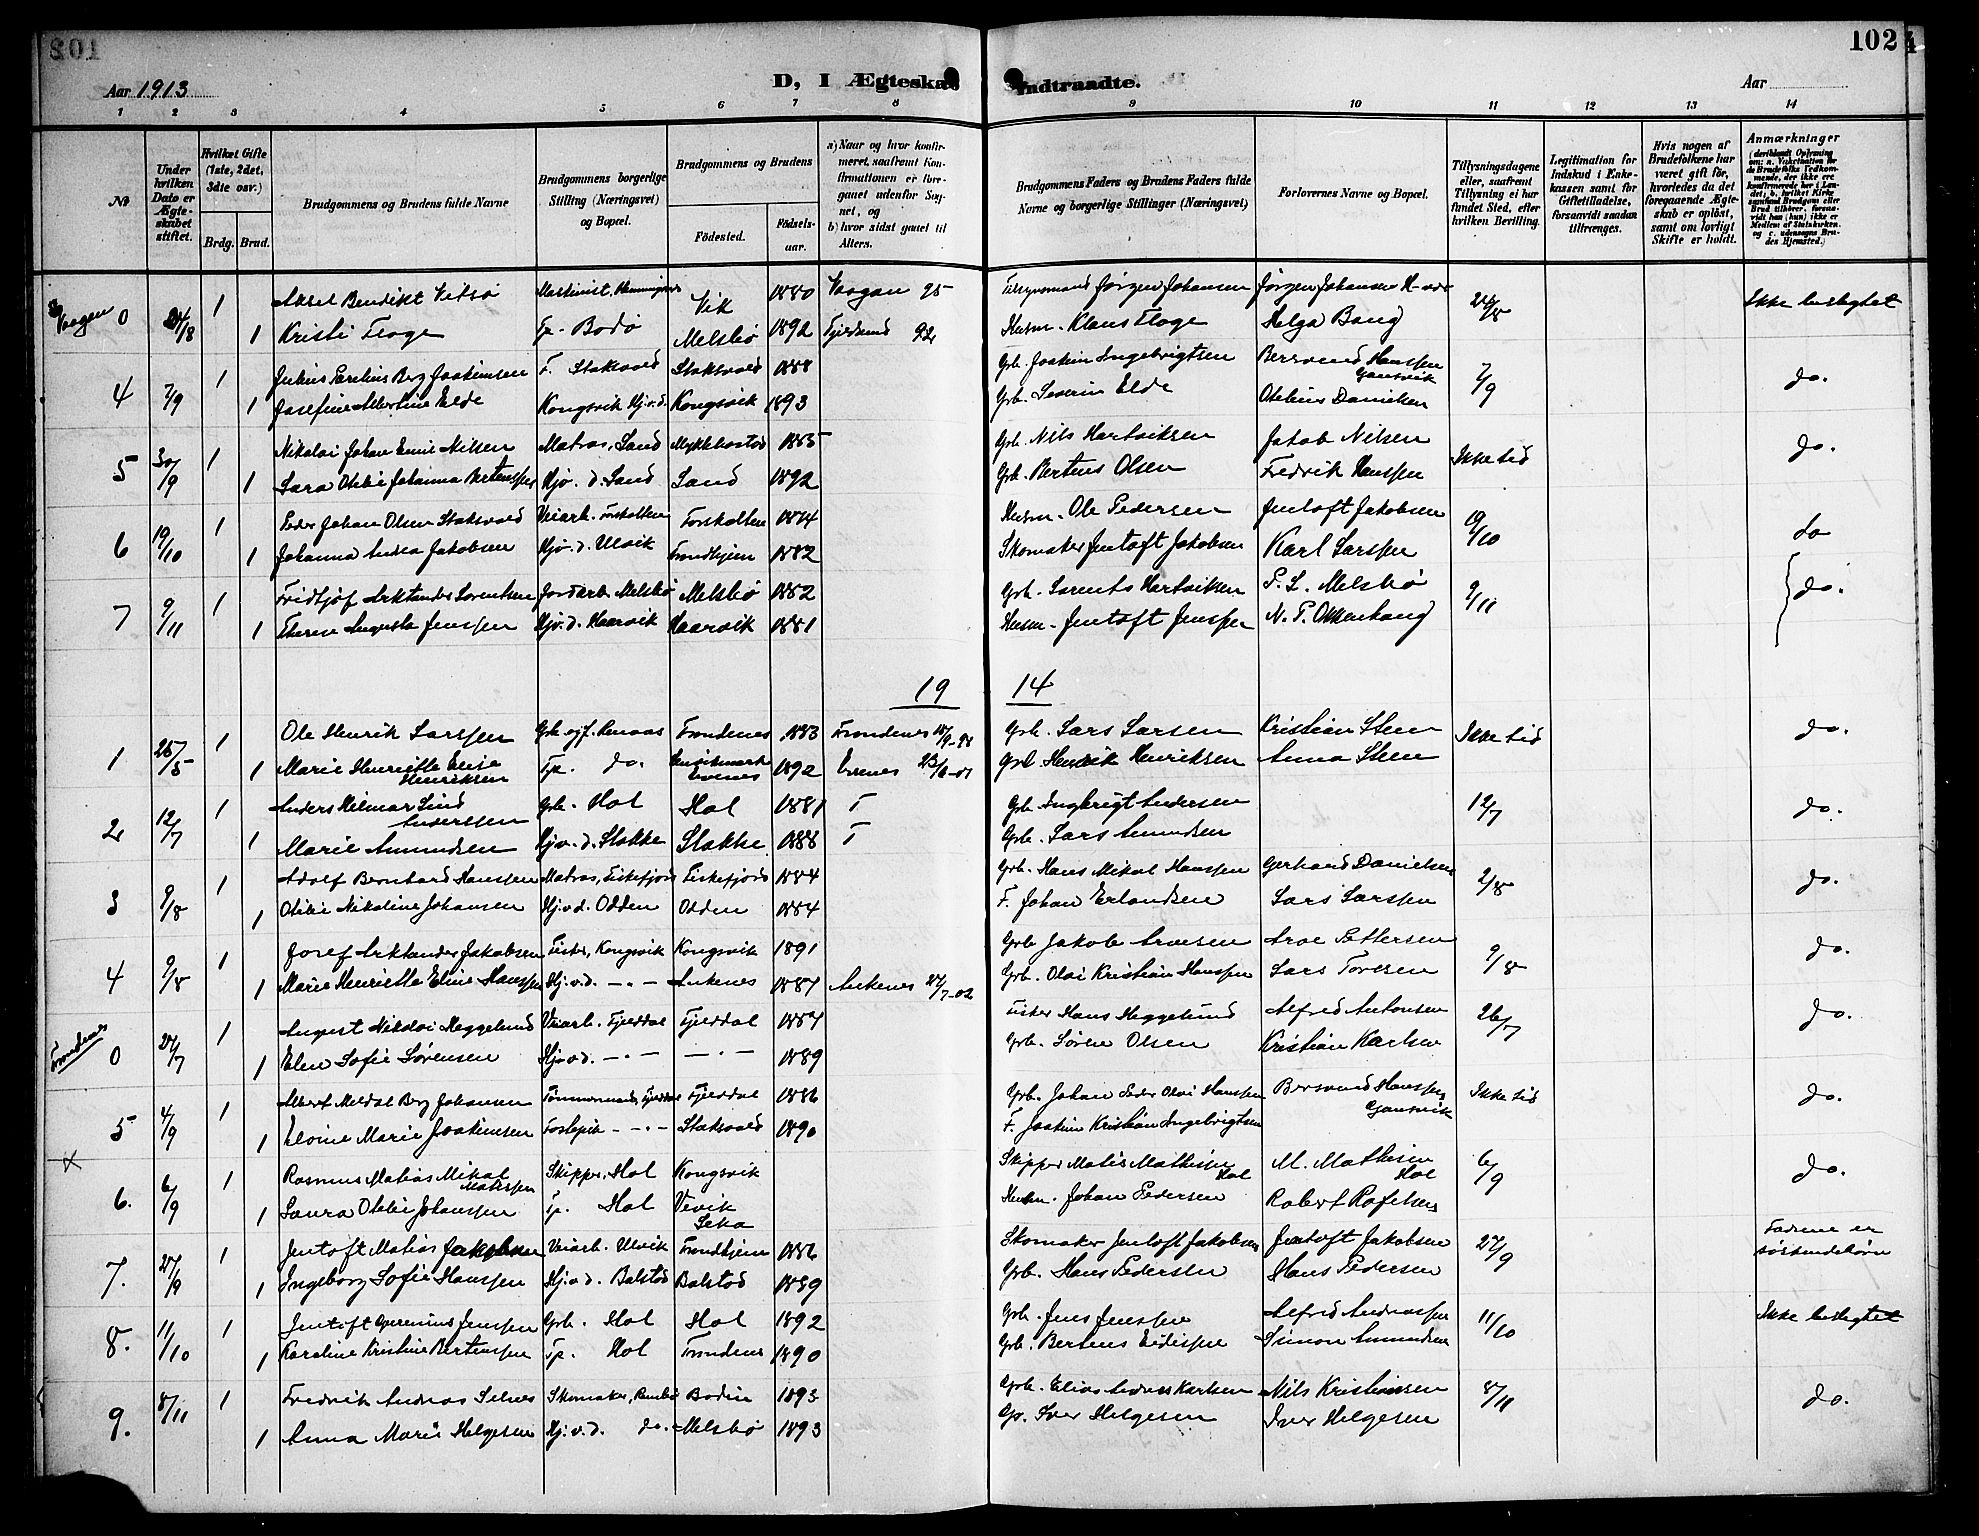 102
Aar 1913
D, I Ægteska
Indtraadte.
Aar
1 2 3 4 5 6 7 8 9 10 11 12 13 14
No
Under hvilken Dato er Ægteskabet stiftet.
Hvilket Gifte (1ste, 2det, 3die osv.)
Brdg. Brud.
Brudgommens og Brudens fulde Navne
Brudgommens borgerlige Stilling (Næringsvei) og Bopæl.
Brudgommens og Brudens
Fødested.
Fødselsaar.
a) Naar og hvor konfirmeret, saafremt Konfirmationen er foregaaet udenfor Sognet, og
b) hvor sidst gaaet til Alters.
Brudgommens Faders og Brudens Faders fulde Navne og borgerlige Stillinger (Næringsvei)
Forlovernes Navne og Bopæl.
Tillysningsdagene eller, saafremt Tillysning ei har fundet Sted, efter hvilken Bevilling.
Legitimation for Indskud i Enkekassen samt for Giftetilladelse, forsaavidt saadan tiltrænges.
Hvis nogen af Brudefolkene har været gift før, hvorledes da det foregaaende Ægteskab er opløst, samt om lovligt Skifte er holdt.
Anmærkninger
Vaagan 0 24/8 1 Aksel Benedikt Vikø Vik 1880 Vaagan 95 Jørgen Johansen Jørgen Johansen 24/8 Ikke beslegtet
1 Kristi Floge Tp. Bodø Melsbø 1892 Fjeldsund 92 Husm. Klaus Floge Helga Bang
4 7/9 1 Julius Parelius Berg Joakimsen F. Staksvold Staksvold 1888 Grb. Joakim Ingebrigtsen Bersvend Hanssen Gausvik 7/9 do.
1 Josefine Albertine Elde Kongsvik Hj.v.d. Kongsvik 1893 Grb. Severin Elde Otelius Danielsen
5 30/9 1 Nikolai Johan Emil Nilsen Matros, Sand Myklebostad 1885 Grb. Nils Hartviksen Jakob Nilsen Ikke tid do.
1 Sara Otilie Johanna Bertenssen Hjv. d. Sand Sand 1892 Grb. Bertens Olsen Fredrik Hanssen
6 19/10 1 Peder Johan Olsen Staksvold Veiarb. Forskalten Forskalten 1874 Husm. Ole Pedersen Jentoft Jakobsen 19/10 do
1 Johanna Andrea Jakobsen Hjv.d. Ulvik Trondhjem 1882 Skomaker Jentoft Jakobsen Karl Larssen
7 9/11 1 Fridtjof Arktander Lorentsen Jordarb. Melsbø Melsbø 1882 Grb. Lorents Hartviksen P. L. Melsbø 9/11 do.
1 Therese Augusta Jenssen Hjv.d. Haarvik Haarvik 1881 Husm. Jentoft Jenssen N. P. Okkenhaug
19 14
1 25/5 1 Ole Henrik Larssen Trondenes 1883 Trondenes Grb. Lars Larsen Kristian Steen Ikke tid do.
1 Marie Henriette Elise Henriksen Tp. do. Evenes 1892 Evenes Grb. Henrik Henriksen Anna Steen
2 12/7 1 Anders Hilmar Lind Anderssen Grb. Hol Hol 1881 T Grb. Ingbrigt Andersen 12/7 do.
1 Marie Amundsen Hjv. d. Slakke Slakke 1888 T Grb. Lars Amundsen
3 9/8 1 Adolf Bernhard Hanssen Matros, Fiskefjord Fiskefjord 1884 Grb. Hans Mikal Hanssen Gerhard Danielsen 2/8 do.
1 Otilie Nikoline Johansen Hjvd. Odden Odden 1884 F. Johan Erlandsen Lars Larssen
4 9/8 1 Josef Arktander Jakobsen Fisker, Kongsvik Kongsvik 1891 Grb Jakob Arvesen Arve Pettersen 9/8 do.
1 Marie Henriette Eline Hanssen Hj.v.d. — " — Ankenes 1887 Ankenes 27/7-02 Grb. Olai Kristian Hanssen Lars Toresen
Trondenes 0 27/7 1 August Nikolai Heggelund Veiarb. Fjeldal Fjeldal 1887 Fisker Hans Heggelund Alfred Antonsen 26/7 do.
1 Eline Sofie Sørensen Hjvd. — " — — " — 1889 Grb. Søren Olsen Kristian Karlsen
5 4/9 1 Albert Meldal Berg Johansen Tømmermand, Fjeldal Fjeldal 1886 Grb. Johan Peder Olai Hanssen Bersvend Hanssen Gausvik Ikke tid do.
1 Elvine Marie Joakimsen — " — Staksvold 1890 F. Joakim Kristian Ingebrigtsen
x
6. 6/9 1 Rasmus Matias Mikal Matissen Skipper, Hol Kongsvik Skipper Matis Mathisen Hol M. Mathisen Hol 6/9 do.
1 Laura Otilie Johanssen Tp. Hol Vevik Leka Husm. Johan Pedersen Robert Rafelsen
7. 27/9 1 Jentoft Matias Jakobsen Veiarb. Ulvik Trondhjem 1886 Skomaker Jentoft Jakobsen Jentoft Jakobsen 27/9 Fædrene er søskendebørn
1 Ingeborg Sofie Hanssen Hj.v.d. Balstad Balstad 1889 Grb. Hans Pedersen Hans Pedersen
8. 11/10 1 Jentoft Jenssen Grb. Hol Hol 1892 Grb. Jens Jenssen Alfred Andreassen 11/10 Ikke beslegtet
1 Karoline Kristine Bertenssen Tp. Hol Trondenes 1890 Grb. Bertens Eidissen Simon Amundsen
9. 8/11 1 Fredrik Andreas Selnes Skomaker, Bodin 1893 Grb. Elias Andreas Karlsen Nils Kristiansen 8/11 do.
1 Anna Marie Helgesen Hj.v.d. do. Melsbø 1893 Gr. Iver Helgesen Iver Helgesen